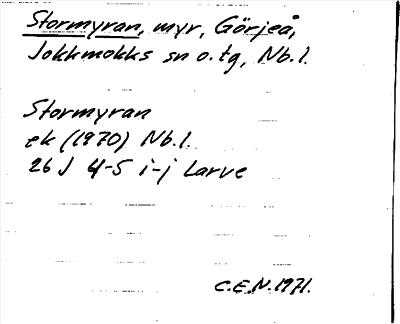 Stormyran, myr, Görjeå,
Jokkmokks sn o. tg, Nb. l.
Stormyran
ek (1970) Nb. l.
26 J 4-5 i-j Larve
C.E.N. 1971.